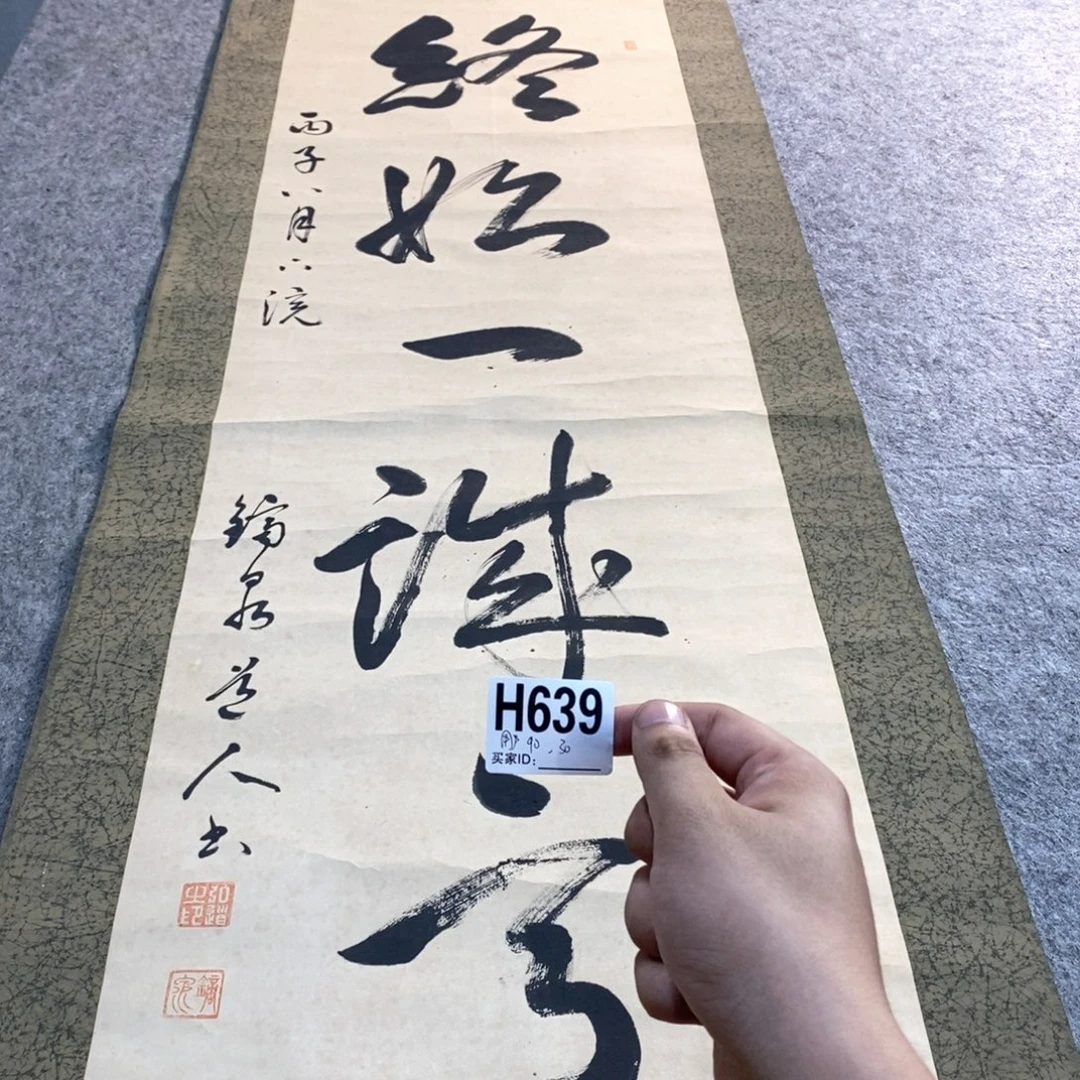 終始一誠
丙子八月下浣
鏑泉道人書
H639
90.30
买家ID: